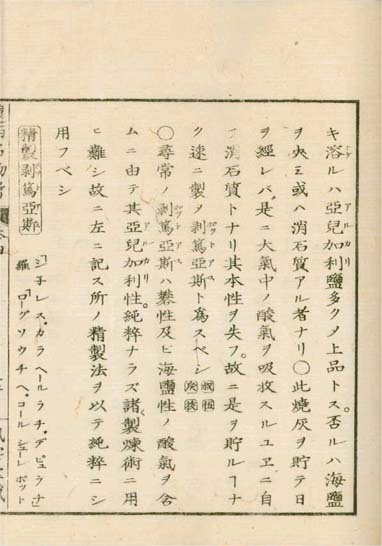 キ溶ルハ亞兒加利鹽多クメ上品トス。否ルハ海鹽
ヲ夾ミ或ハ消石質アル者ナリ〇此燒灰ヲ貯テ日
ヲ經レバ是ニ大氣中ノ酸氣ヲ吸收スルユヱニ自
ラ消石質トナリ其本性ヲ失フ。故ニ是ヲ貯ルヿナ
ク速ニ製メ剥篤亞斯ト爲スベシ
〇尋常ノ剥篤亞斯ハ礬性及ビ海鹽性ノ酸氣ヲ含
ムニ由テ其亞兒加利性。純粹ナラズ諸製煉術ニ用
ヒ難シ故ニ左ニ記ス所ノ精製法ヲ以テ純粹ニシ
用フベシ
精製剥篤亞斯
「シチレス。カラヘールラチ。デピュラナ」
羅「ローグソウチヘ。コールシューレポット